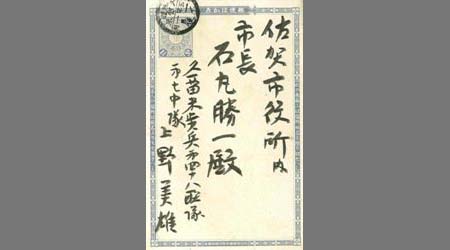 佐賀市役所内
市長
石丸勝一殿
久留米歩兵第四十八聯隊
第七中隊
上野美雄